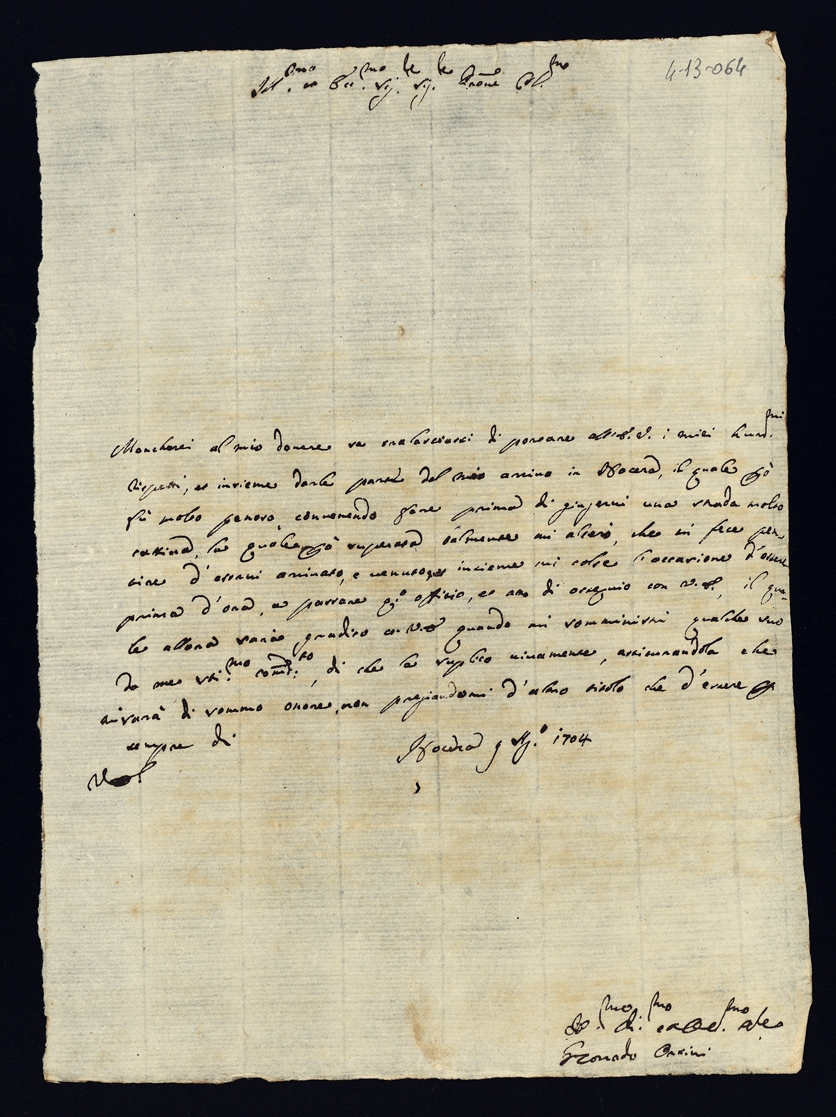 Ill.mo et Ecc.mo Sig.re Sig.re Prone Col.mo
4-13-064
Mancherei al mio douere se tralasciassi di portare all'E.V. i miei hum.mi
rispetti, et insieme darle parte del mio arriuo in Nocera, il quale però
fù molto penoso, conuenendo fare prima di giugerui una strada molto
cattiua, la quale però superata talmente mi alterò, che mi fece pen
tire d'esserui arriuato, e insieme mi tolse l'occasione d'essere
prima d'ora, a passare q.to offitio, et atto di ossequio con V.E., il qua-
le allora sarà gradito quando mi somministri qualche suo
da me sti.mo com.to, di che la suplico uiuamente, assicurandola che
mi sarà di sommo onore, non pregiandomi d'altro titolo che d'essere p
sempre di
V.E.
Nocera 9 Ag.o 1704
Hu.mo Di.mo et Obl.mo
Orsini